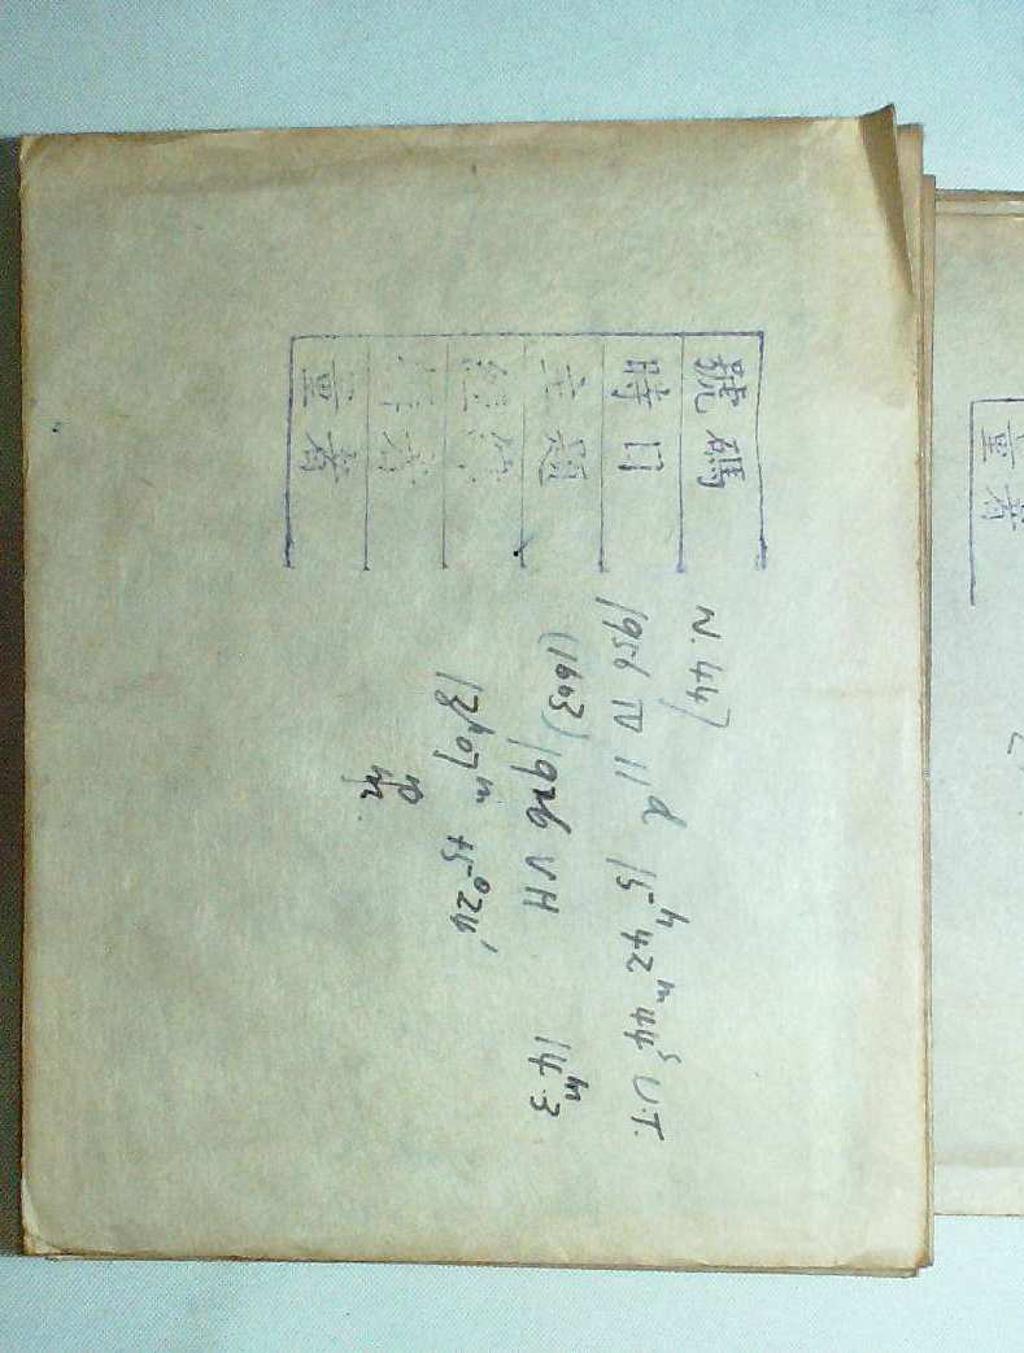 號碼 N. 447
時日 1956 IV 11d 15h 42m 44s U.T.
主題 (1603) 1926 VH 14m.3
13h 07m +5°24'
量者
量者